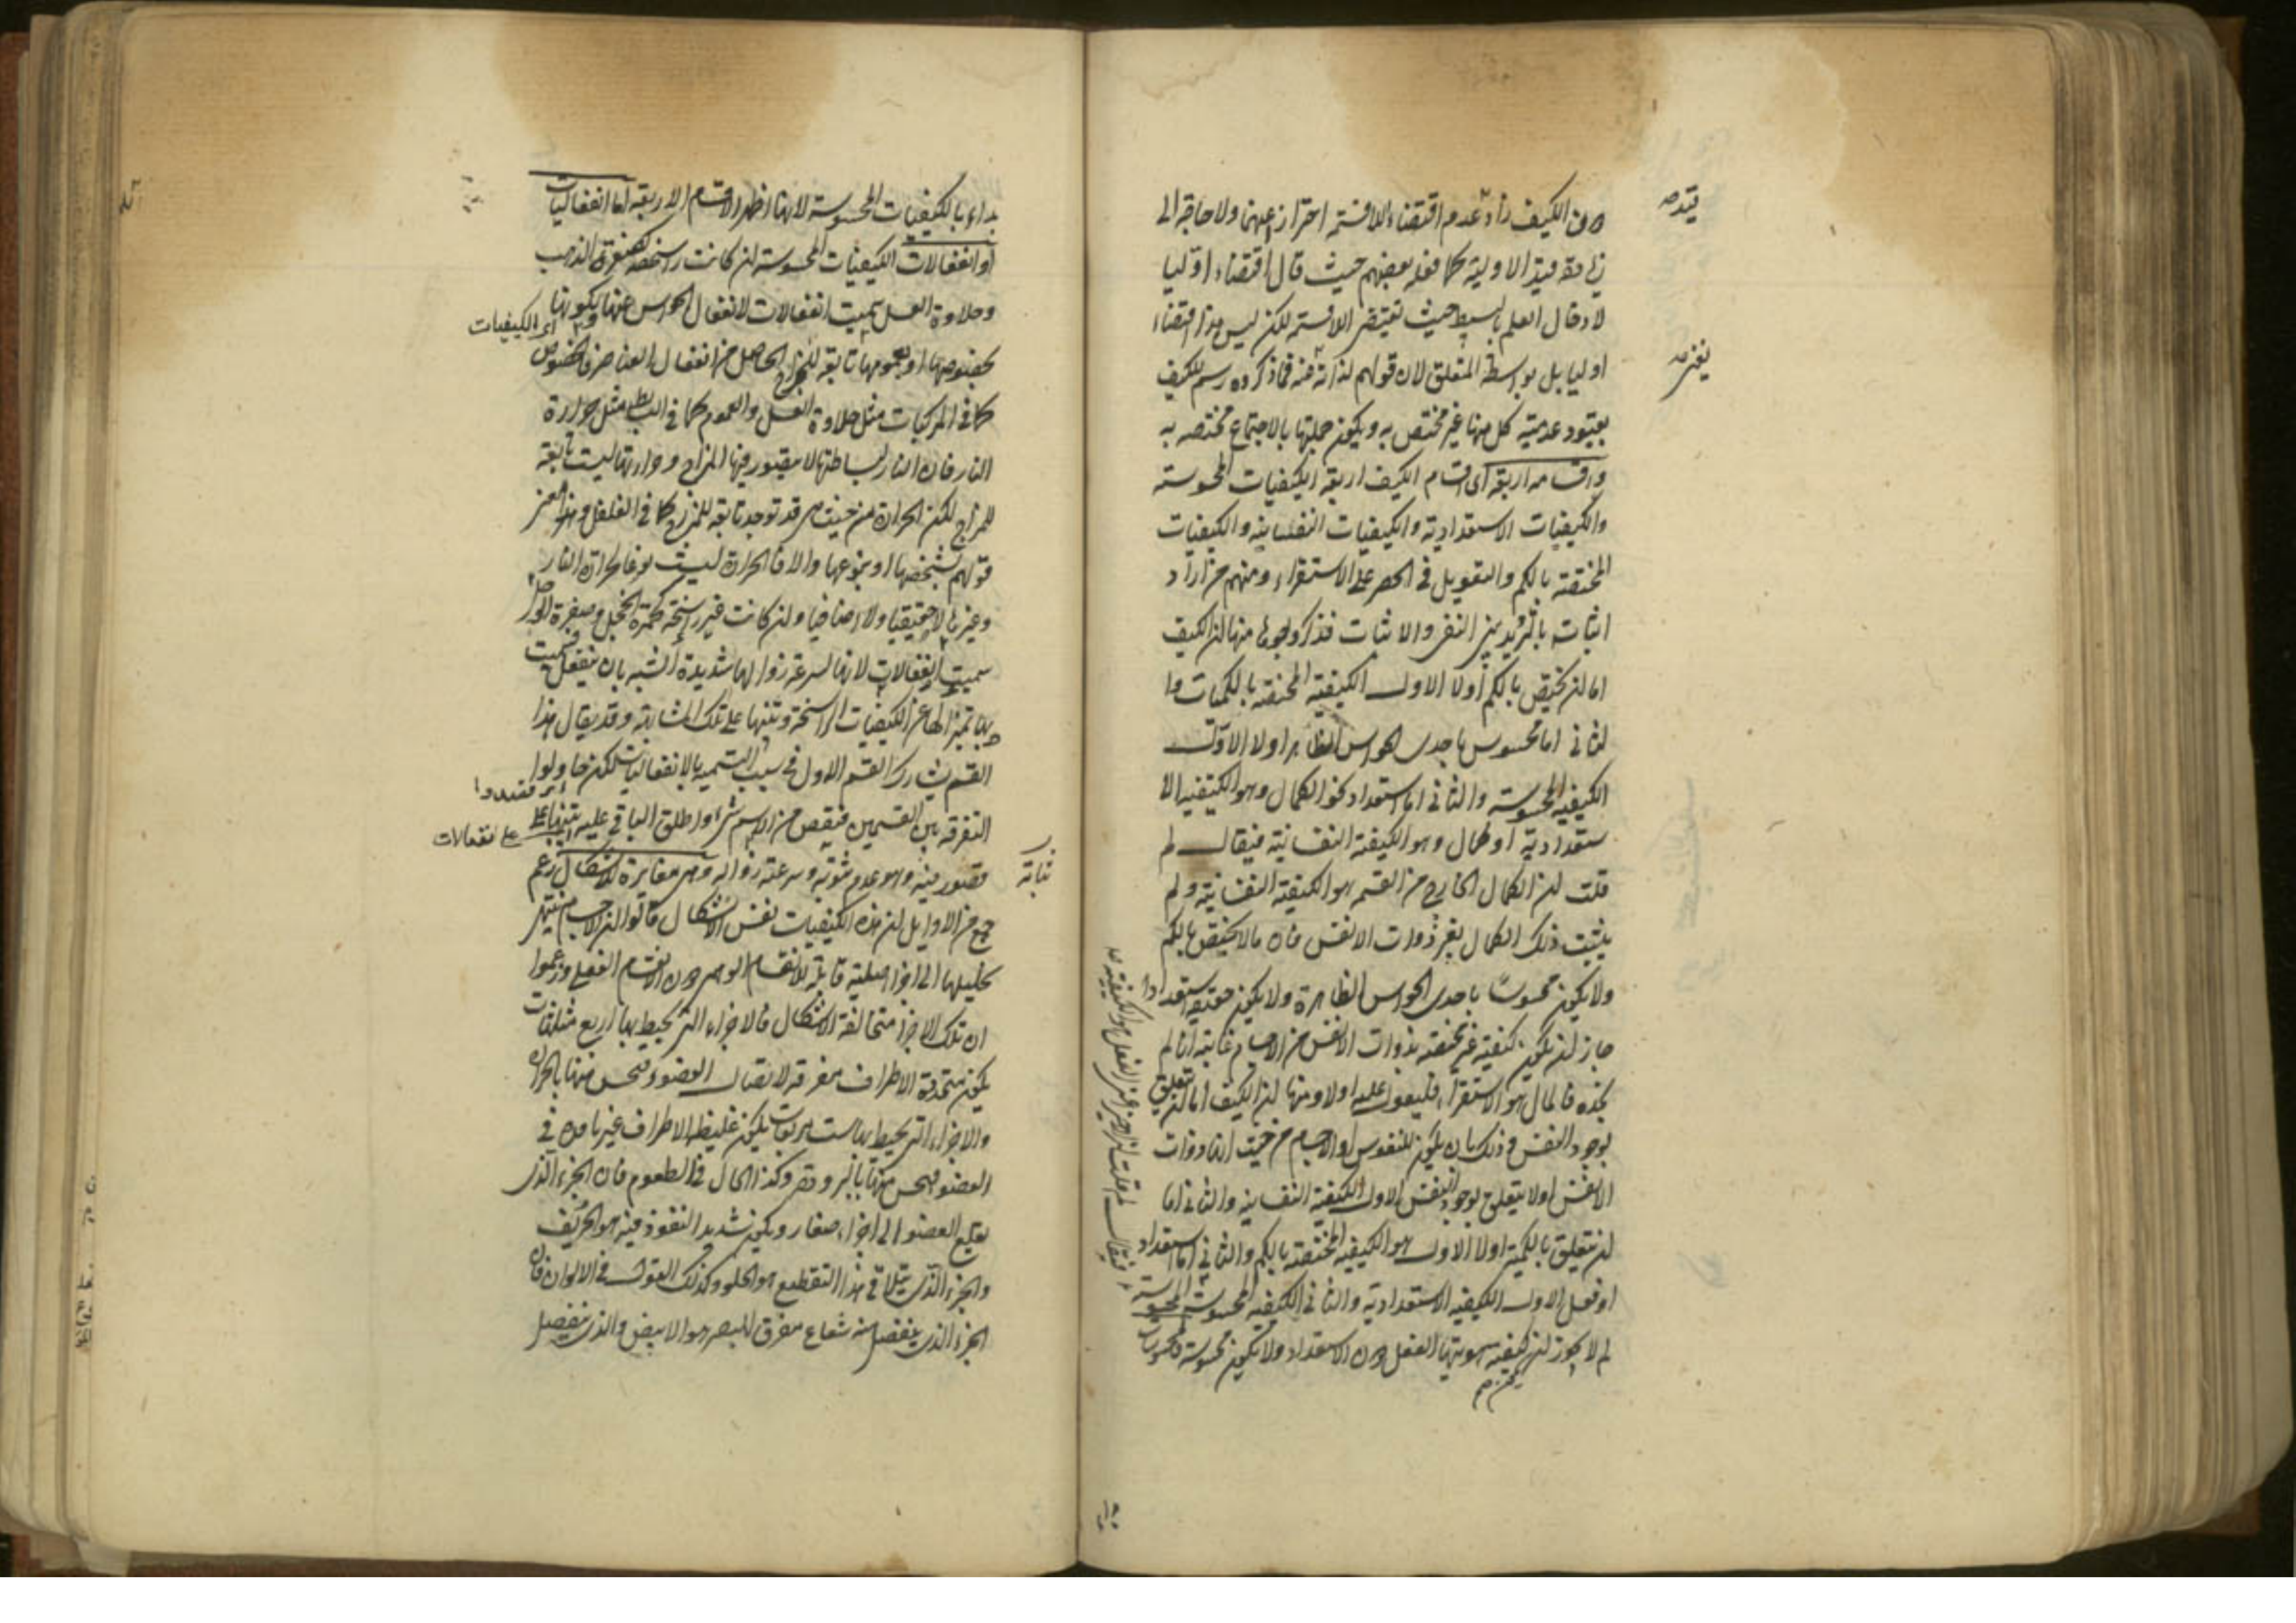 من الكيف زاد عدم اقتضاء اللاقسمة احترازا عنهما ولا حاجة الى
زيادة قيد الاولية كما فعله بعضهم حيث قال اقتضاء اوليا
لادخال العلم بالبسيط حيث تقتضى اللاقسمة لكن ليس هذا اقتضاء
اوليا بل بواسطة المتعلق لان قولهم لذاته عنه فما ذكروه رسم للكيف
بقيود عدمية كل منها غير مختص به ويكون جملتها بالاجتماع مختصة به
واقسامه اربعة اى اقسام الكيف اربعة الكيفيات المحسوسة
والكيفيات الاستعدادية والكيفيات النفسانية والكيفيات
المختصة بالكم والتعويل فى الحصر على الاستقراء ومنهم من اراد
اثباته بالترديد بين النفى والاثبات فذكر وجوها منها ان الكيف
اما ان يختص بالكم اولا الاول الكيفية المختصة بالكميات وا
لثانى اما محسوس باحدى الحواس الظاهرة اولا الاول
الكيفية المحسوسة والثانى اما استعداد نحو الكمال وهو الكيفية الا
ستعدادية او كمال وهو الكيفية النفسانية فيقال لم
قلت ان الكمال الخارج من القسمة هو الكيفية النفسانية ولم
يثبت ذلك الكمال لغير ذوات الانفس فان مالا يختص بالكم
ولا يكون محسوسا باحدى الحواس الظاهرة ولا يكون حقيقته استعدادا
جاز ان يكون كيفية غير مختصة بذوات الانفس من الاجسام غايته انا لم
نجده فالمال هو الاستقراء فليعول عليه اولا ومنها ان الكيف اما ان يتعلق
بوجود النفس وذلك بان يكون للنفوس او الاجسام من حيث انها ذوات
الانفس اولا يتعلق بوجود النفس الاول الكيفية النفسانية والثانى اما
ان يتعلق بالكمية اولا الاول هو الكيفية المختصة بالكم والثانى اما استعداد
او فعل الاول الكيفية الاستعدادية والثانى الكيفية المحسوسة
لم لا يجوز ان كيفية هويتها الفعل دون الاستعداد ولا يكون محسوسة
يكون صح
بداء بالكيفيات المحسوسة لانها اظهر الاقسام الاربعة اما انفعاليات
او انفعالات الكيفيات المحسوسة ان كانت راسخة كصفرة الذهب
وحلاوة العسل سميت انفعالات لانفعال الحواس عنها ولكونها
اى الكيفيات
بخصوصها او بعمومها تابعة للمزاج الحاصل من انفعال العناصر فالخصوص
كما فى المركبات مثل حلاوة العسل والعموم كما فى البسائط مثل حرارة
النار فان النار لبساطتها لا يتصور فيها المزاج وحرارتها ليست تابعة
للمزاج لكن الحرارة من حيث هى قد توجد تابعة للمزاج كما فى الفلفل وهذا معنى
قولهم بشخصها او بنوعها والا فالحرارة ليست نوعا لحرارة النار
وغيرها لا حقيقيا ولا اضافيا وان كانت غير راسخة كحمرة الخجل وصفرة الوجل
سميت انفعالات لانها لسرعة زوالها شديدة الشبه بان ينفعل فسميت
بها تميزا لها عن الكيفيات الراسخة وتنبيها على تلك المشابهة وقد يقال هذا
القسم يشارك القسم الاول فى سبب التسمية بالانفعاليات لكن حاولوا
اى قصدوا
التفرقة بين القسمين فنقص من الاسم شئ واطلق الباقى عليه تنبيها على
قصور فيه وهو عدم ثبوته وسرعة زواله وهى مغايرة للاشكال زعم
جمع من الاوايل ان هذه الكيفيات نفس الاشكال قالوا ان الاجسام ينتهى
تحليلها الى اجزاء صلبة قابلة للانقسام الوهمى دون الانقسام الفعلى وزعموا
ان تلك الاجزاء متخالفة الاشكال فالاجزاء التى يحيط بها اربع مثلثات
يكون محددة الاطراف مفرقة لاتصال العضو فيحس منها بالحرارة
والاجزاء التى يحيط بها ست مربعات يكون غليظة الاطراف غير نافذة فى
العضو فيحس منها بالبرودة وكذا الحال فى الطعوم فان الجزء الذى
يقطع العضو الى اجزاء صغار ويكون شديد النفوذ فيه هو الحريف
والجزء الذى يتلاقى هذا التقطيع هو الحلو وكذلك القول فى الالوان فان
الجزء الذى ينفصل منه شعاع مفرق للبصر هو الابيض والذى ينفصل